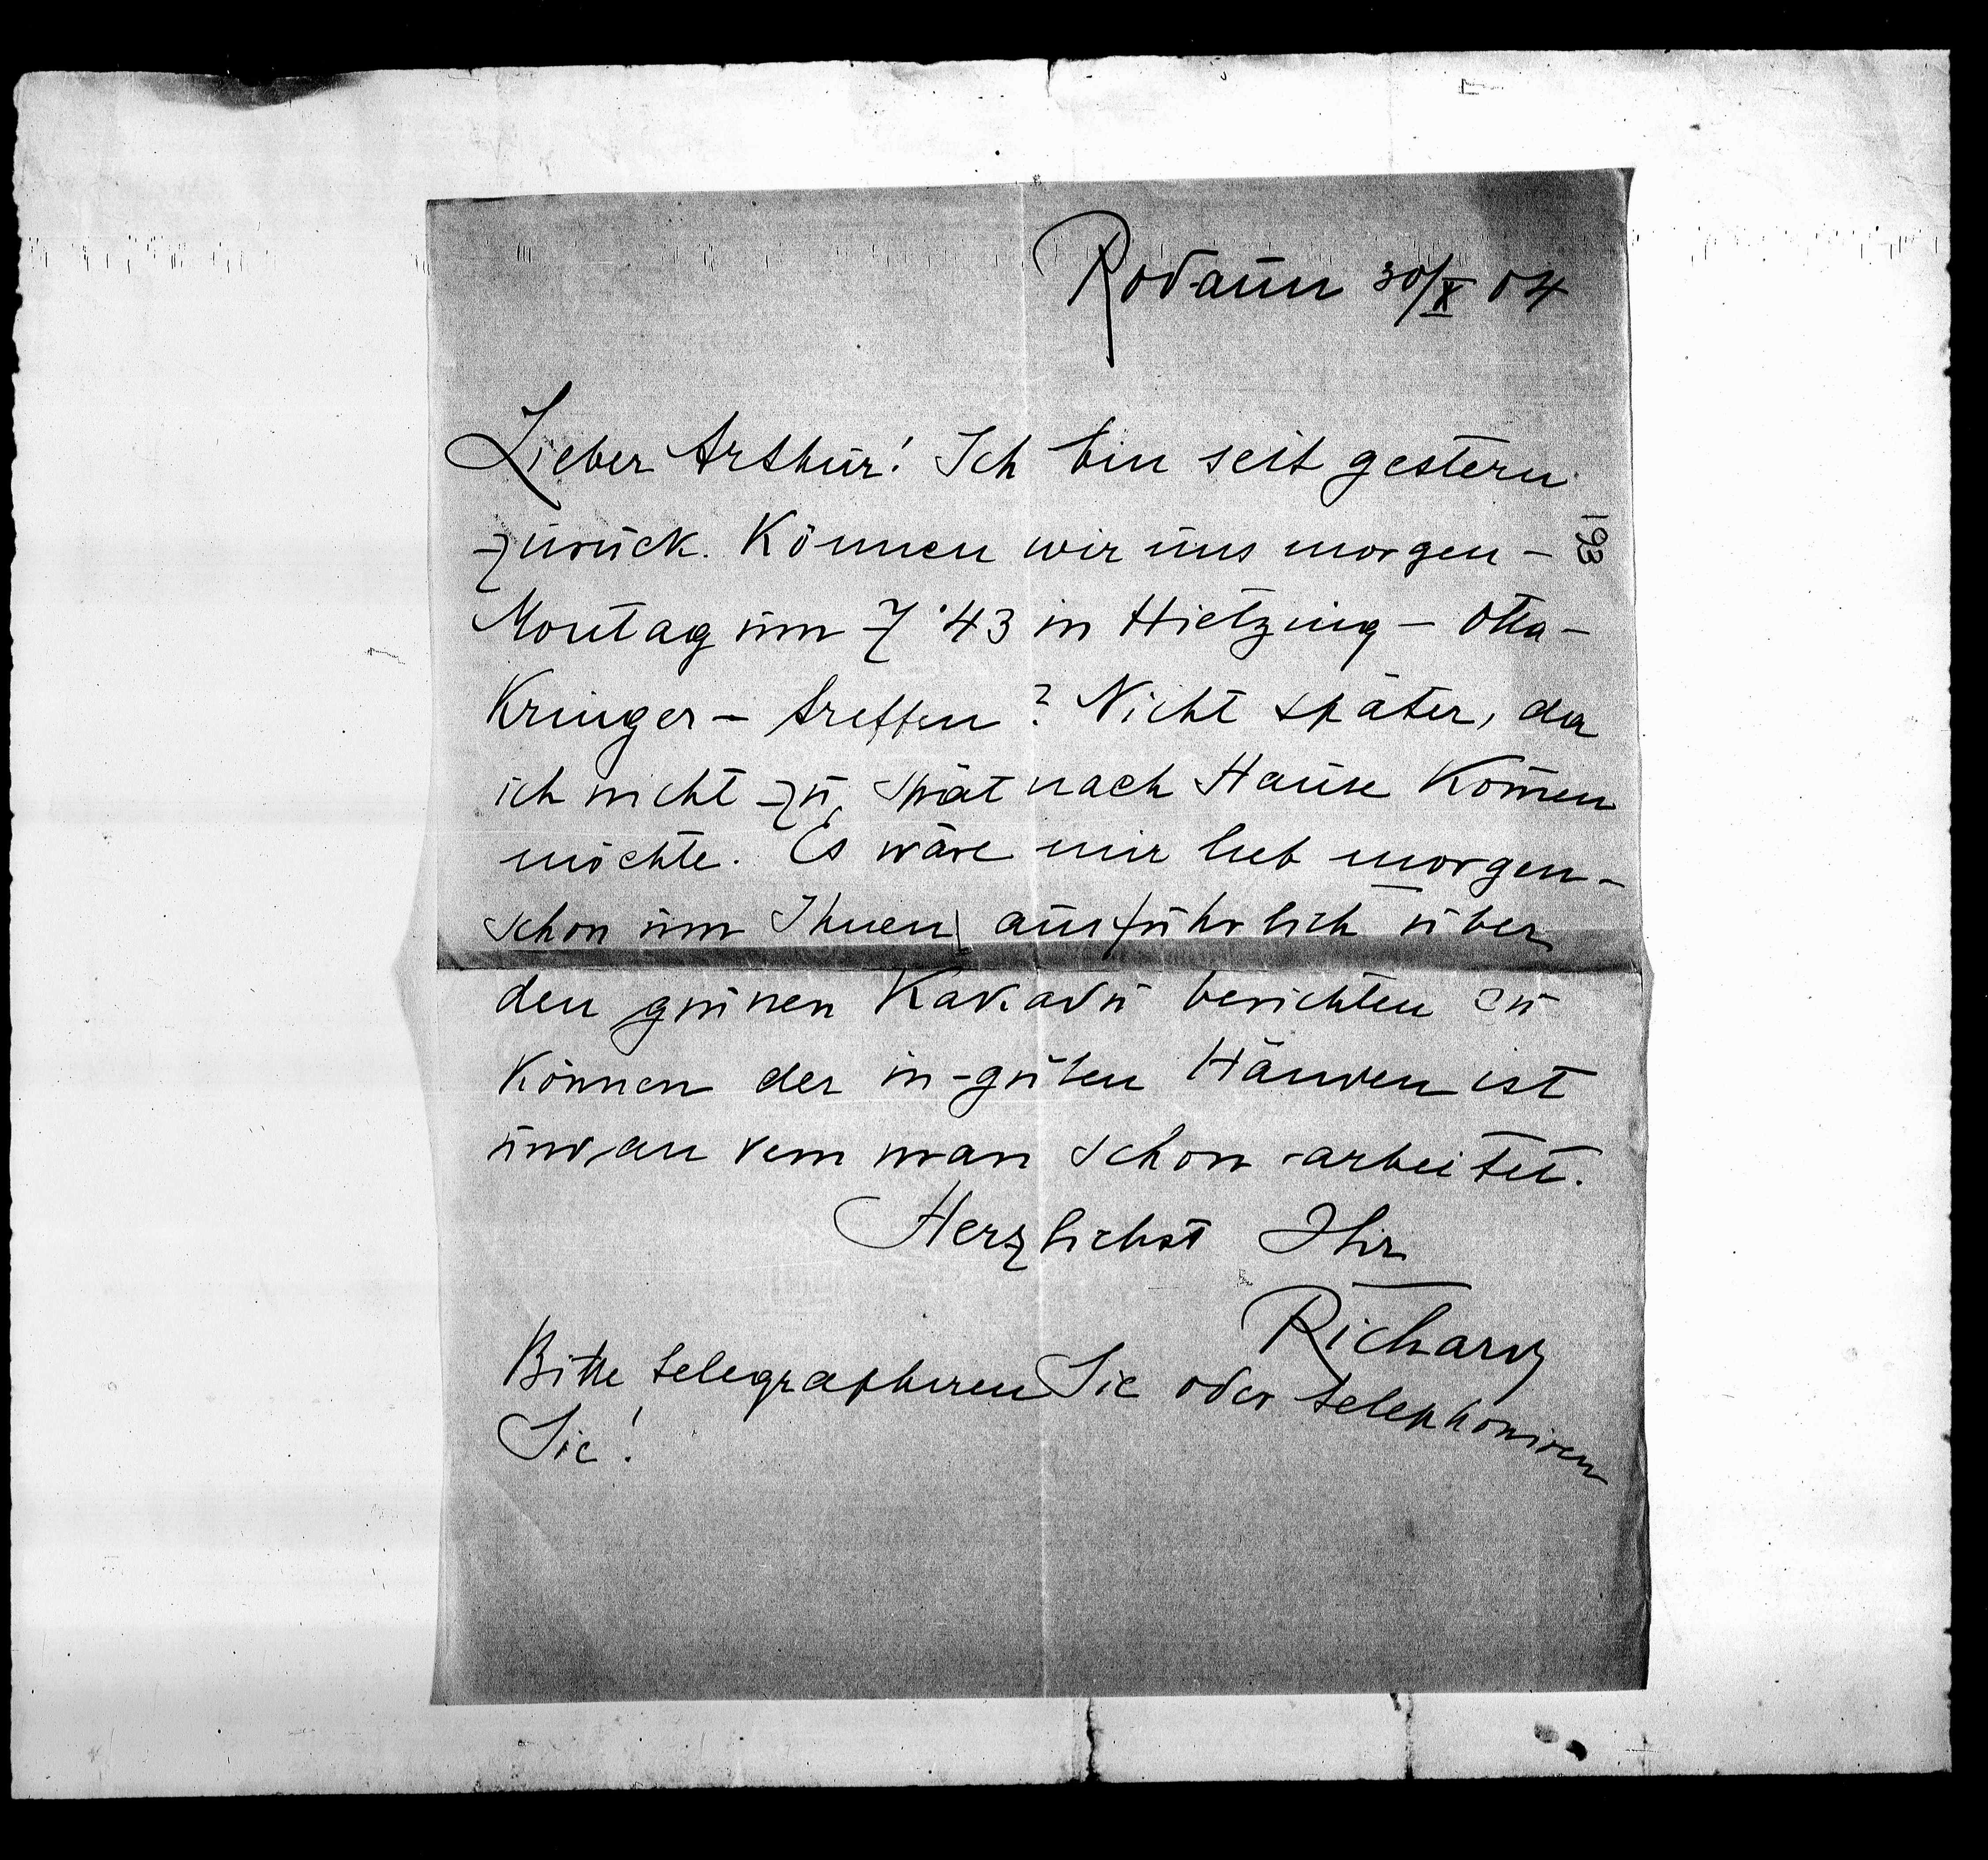 Rodaun 30/X 04
Lieber Arthur! Ich bin seit gestern
zurück. Können wir uns morgen –
193
Montag um 7·43 in Hietzing – Otta-
Kringer – treffen? Nicht später, da
ich nicht zu spät nach Hause kom̅en
möchte. Es wäre mir lieb morgen –
schon um Ihnen ausführlich über
den grünen Kakadu berichten zu
können der in guten Händen ist
und an dem man schon arbeitet.
Herzlichst Ihr
Richard
Bitte telegraphiren Sie oder telephoniren
Sie!